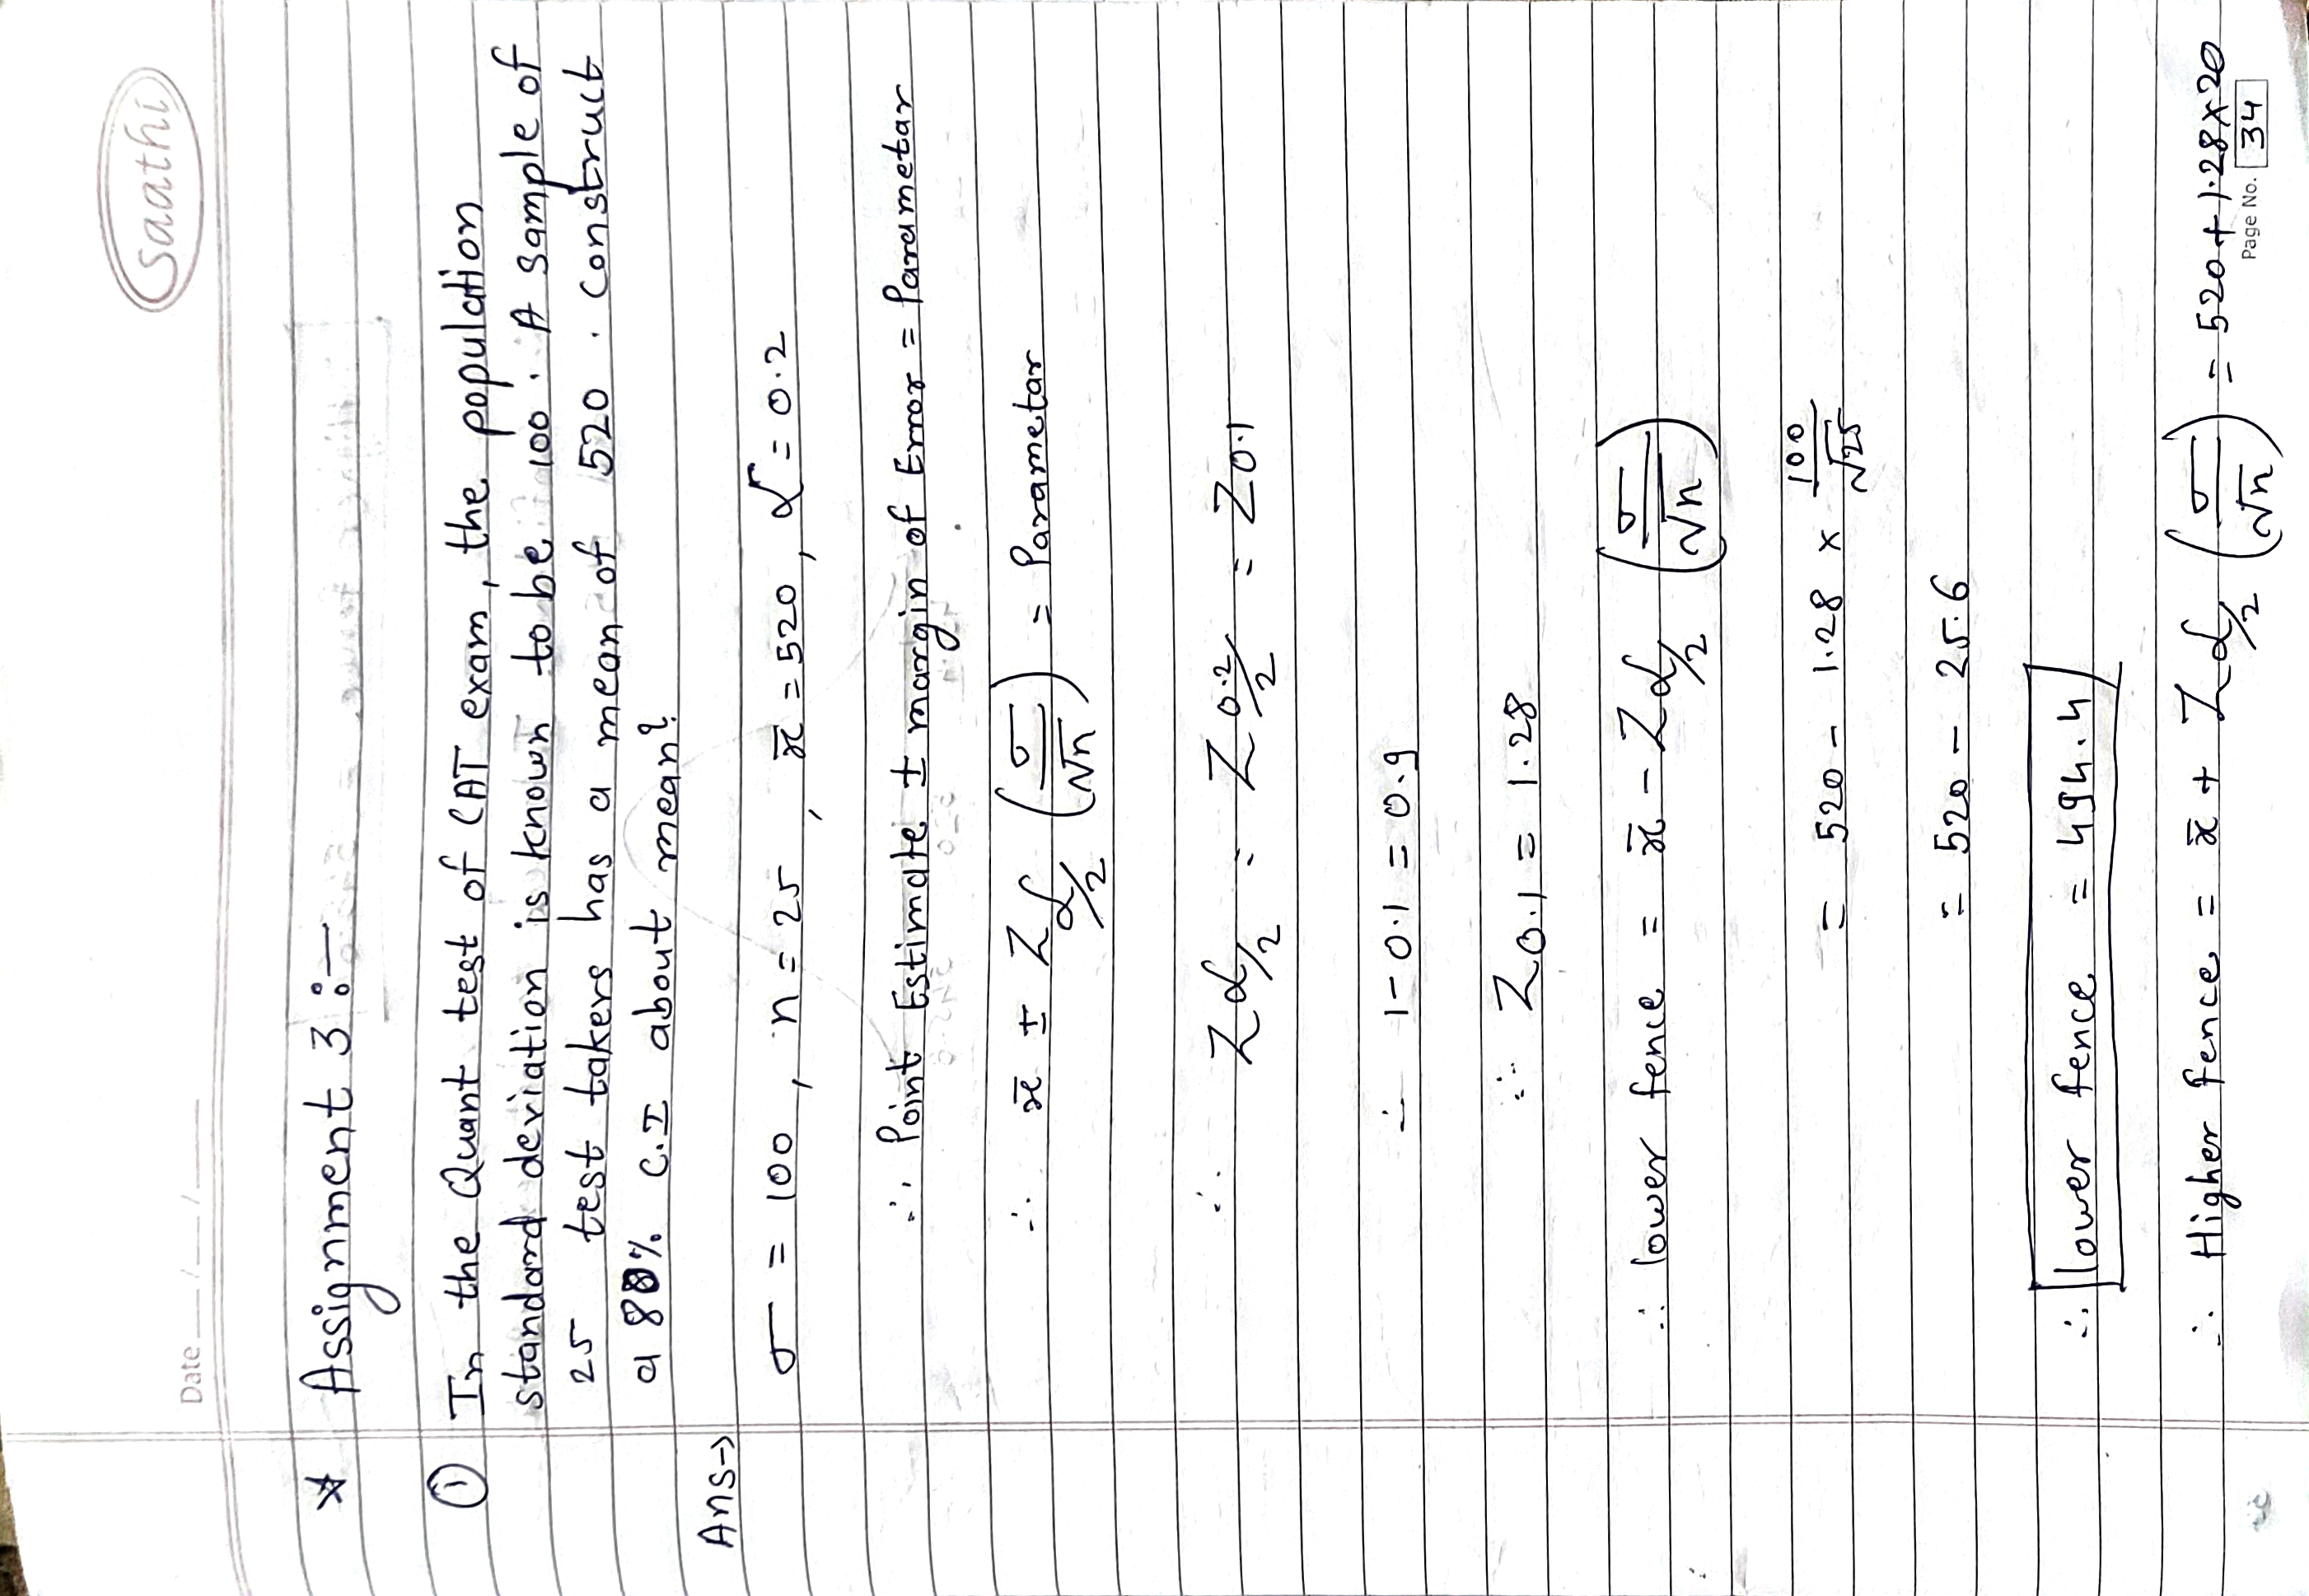 saathi
Date __/__/____
* Assignment 3 :-
① In the Quant test of CAT exam, the population
standard deviation is known to be 100. A sample of
25 test takers has a mean of 520. construct
a 80% C.I about mean?
Ans→
σ = 100, n = 25, x̄ = 520, α = 0.2
∴ Point Estimate ± margin of Error = Parametar
∴ x̄ ± Z α/2 (σ/√n) = Parametar
∴ Z α/2 = Z 0.2/2 = Z0.1
∴ 1-0.1 = 0.9
∴ Z0.1 = 1.28
∴ lower fence = x̄ - Z α/2 (σ/√n)
= 520 - 1.28 × 100/√25
= 520 - 25.6
∴ lower fence = 494.4
∴ Higher fence = x̄ + Z α/2 (σ/√n) = 520 + 1.28×20
Page No. 34